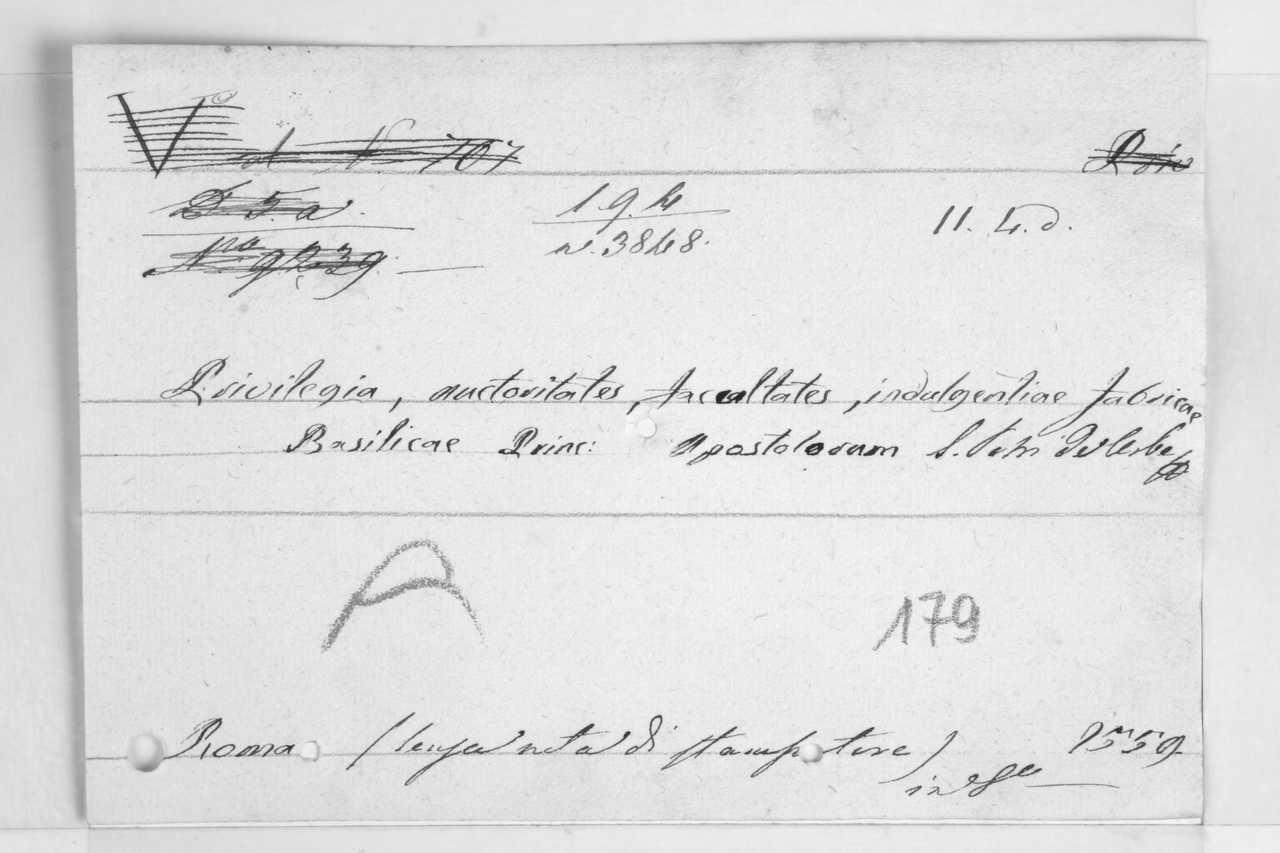 V
707
D 5. a. 1. 9. 4 11. 4. d.
N.ro 9239. n. 3848.
Privilegia, auctoritates, facultates, indulgentiae fabricae
Basilicae Princ: Apostolorum S. Petri de Urbe
A 179
Roma (senza nota di stampatore) 1559
in 8º